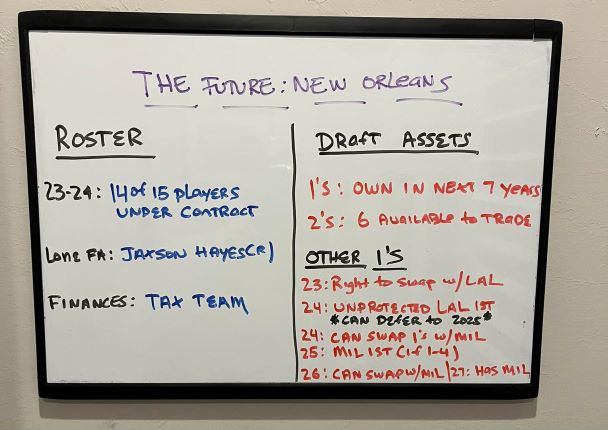 THE FUTURE: NEW ORLEANS
ROSTER
23-24: 14 of 15 PLAYERS
UNDER CONTRACT
LONE FA: JAXSON HAYES (R)
FINANCES: TAX TEAM
DRAFT ASSETS
1'S: OWN IN NEXT 7 YEARS
2'S: 6 AVAILABLE to TRADE
OTHER 1'S
23: Right to swap w/LAL
24: UNPROTECTED LAL 1ST
*CAN DEFER to 2025*
24: CAN SWAP 1'S w/MIL
25: MIL 1ST (1-f 1-4)
26: CAN SWAP w/MIL | 27: HAS MIL